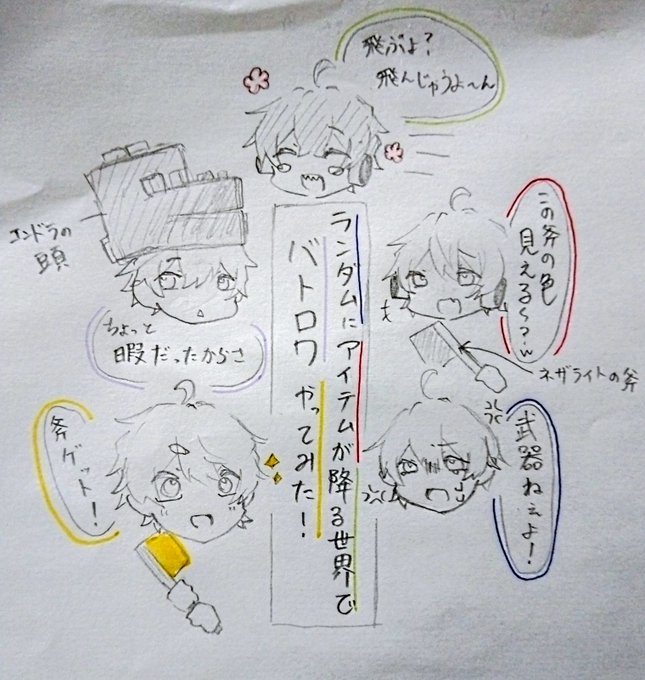 飛ぶよ?
飛んじゃうよ〜ん
エンドラの
頭
ちょっと
暇だったからさ
この斧の色
見える〜?w
ネザライトの斧
ランダムにアイテムが降る世界で
バトロワ やってみた!
斧ゲット!
武器ねぇよ!